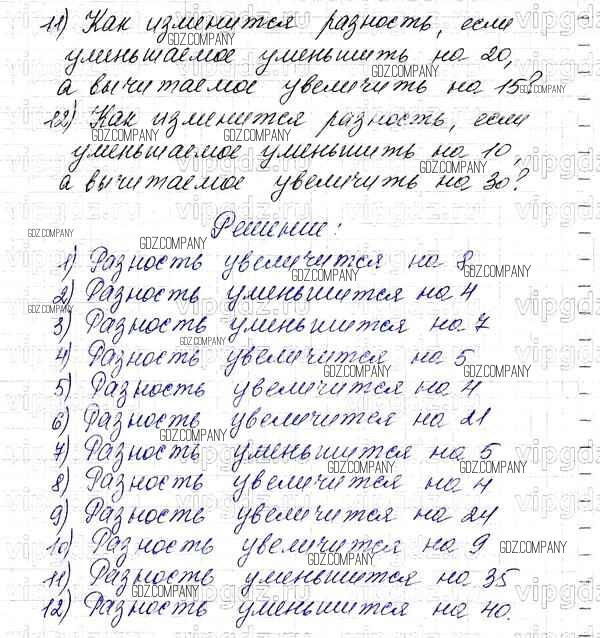 11) Как изменится разность, если
уменьшаемое уменьшить на 20,
а вычитаемое увеличить на 15?
12) Как изменится разность, если
уменьшаемое уменьшить на 10,
а вычитаемое увеличить на 30?
Решение:
1) Разность увеличится на 8
2) Разность уменьшится на 4
3) Разность уменьшится на 7
4) Разность увеличится на 5
5) Разность увеличится на 4
6) Разность увеличится на 21
7) Разность уменьшится на 5
8) Разность увеличится на 4
9) Разность увеличится на 24
10) Разность увеличится на 9
11) Разность уменьшится на 35
12) Разность уменьшится на 40.
GDZ.COMPANY
vipgdz.ru